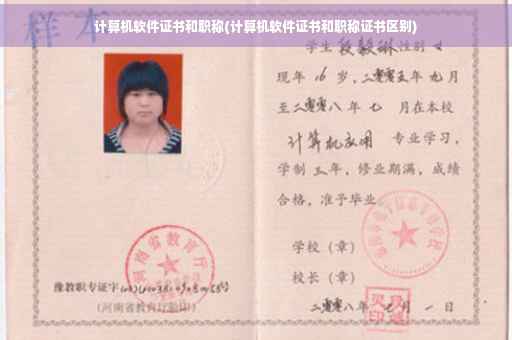 计算机软件证书和职称(计算机软件证书和职称证书区别)
样本
学生段毅琳性别女
现年16岁，二零零五年九月
至二零零八年七月在本校
计算机应用 专业学习，
学制三年，修业期满，成绩
合格，准予毕业
学校（章）
校长（章）
二零零八年七月一日
河南省教育厅
豫教职专证字
号
(河南省教育厅验印)